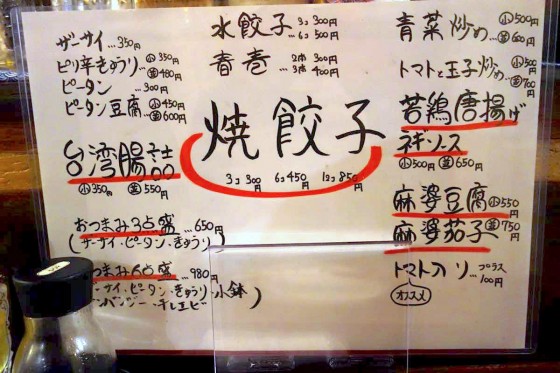 ザーサイ…350円
ピリ辛きゅうり…小350円 並480円
ピータン…300円
ピータン豆腐…小450円 並600円
台湾腸詰
小350円 並550円
おつまみ3点盛…650円
(ザーサイ・ピータン・きゅうり)
おつまみ6点盛…980円
ーサイ・ピータン・きゅうり・小鉢
ンバンジー・チリエビ)
水餃子 3コ300円 6コ500円
春巻 2本300円 3本400円
焼餃子
3コ300円 6コ450円 12コ850円
青菜炒め…小500円 並600円
トマトと玉子炒め…小500円 並700円
若鶏唐揚げ
ネギソース
小500円 並650円
麻婆豆腐 小550円
麻婆茄子 並750円
トマト入り プラス100円
オススメ